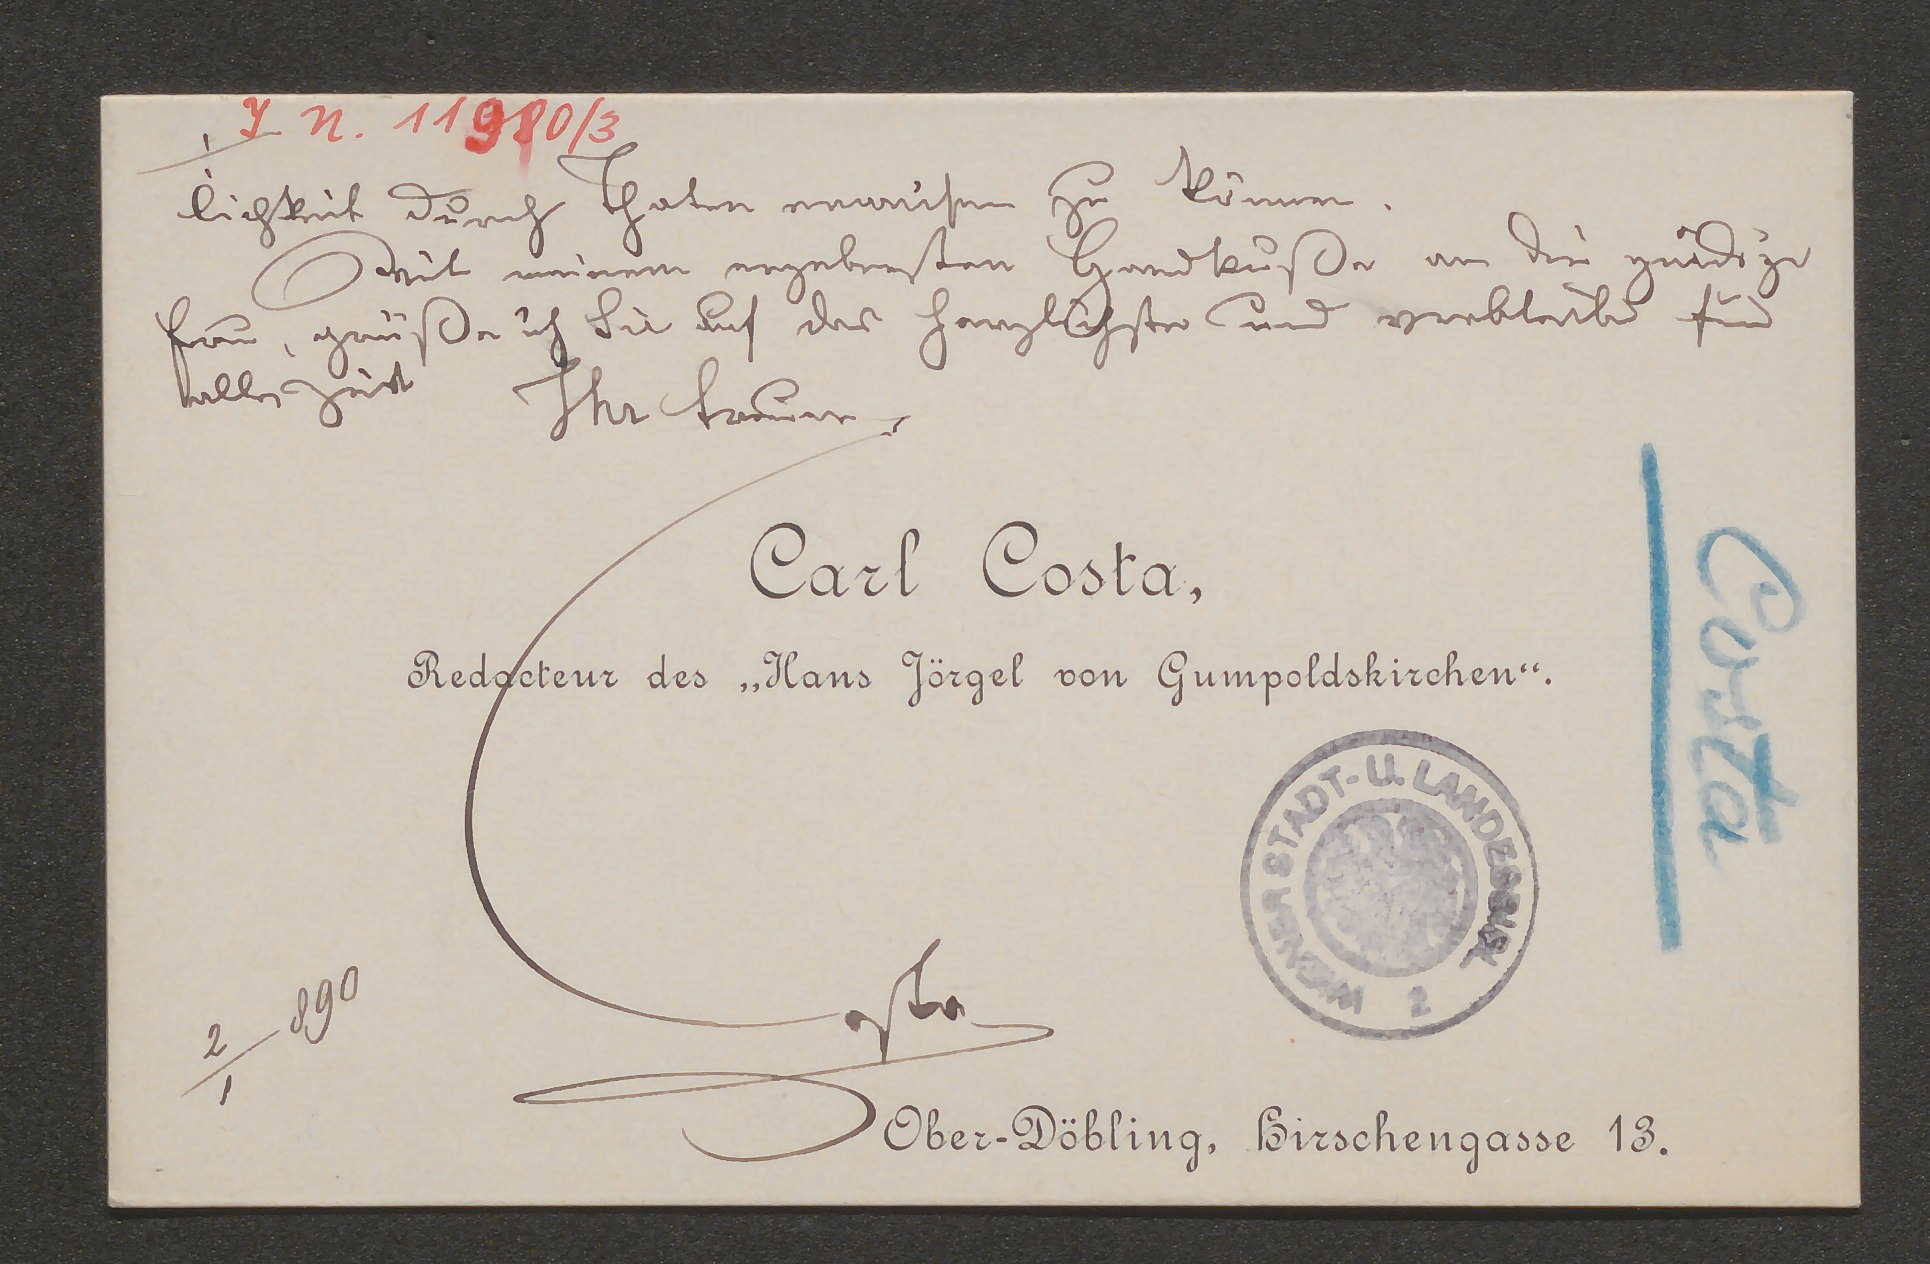 J. N. 11980/3
lichkeit durch Thaten erweisen zu können.
Mit meinem ergebensten Handkuße an die gnädige
Frau, grüße ich Sie auf das herzlichste und verbleibe für
alle Zeit Ihr treuer
Carl Costa,
Redacteur des „Hans Jörgel von Gumpoldskirchen“.
Costa
WIENER STADT- U. LANDESBIBL.
2
Costa
2/1 890
Ober-Döbling, Hirschengasse 13.